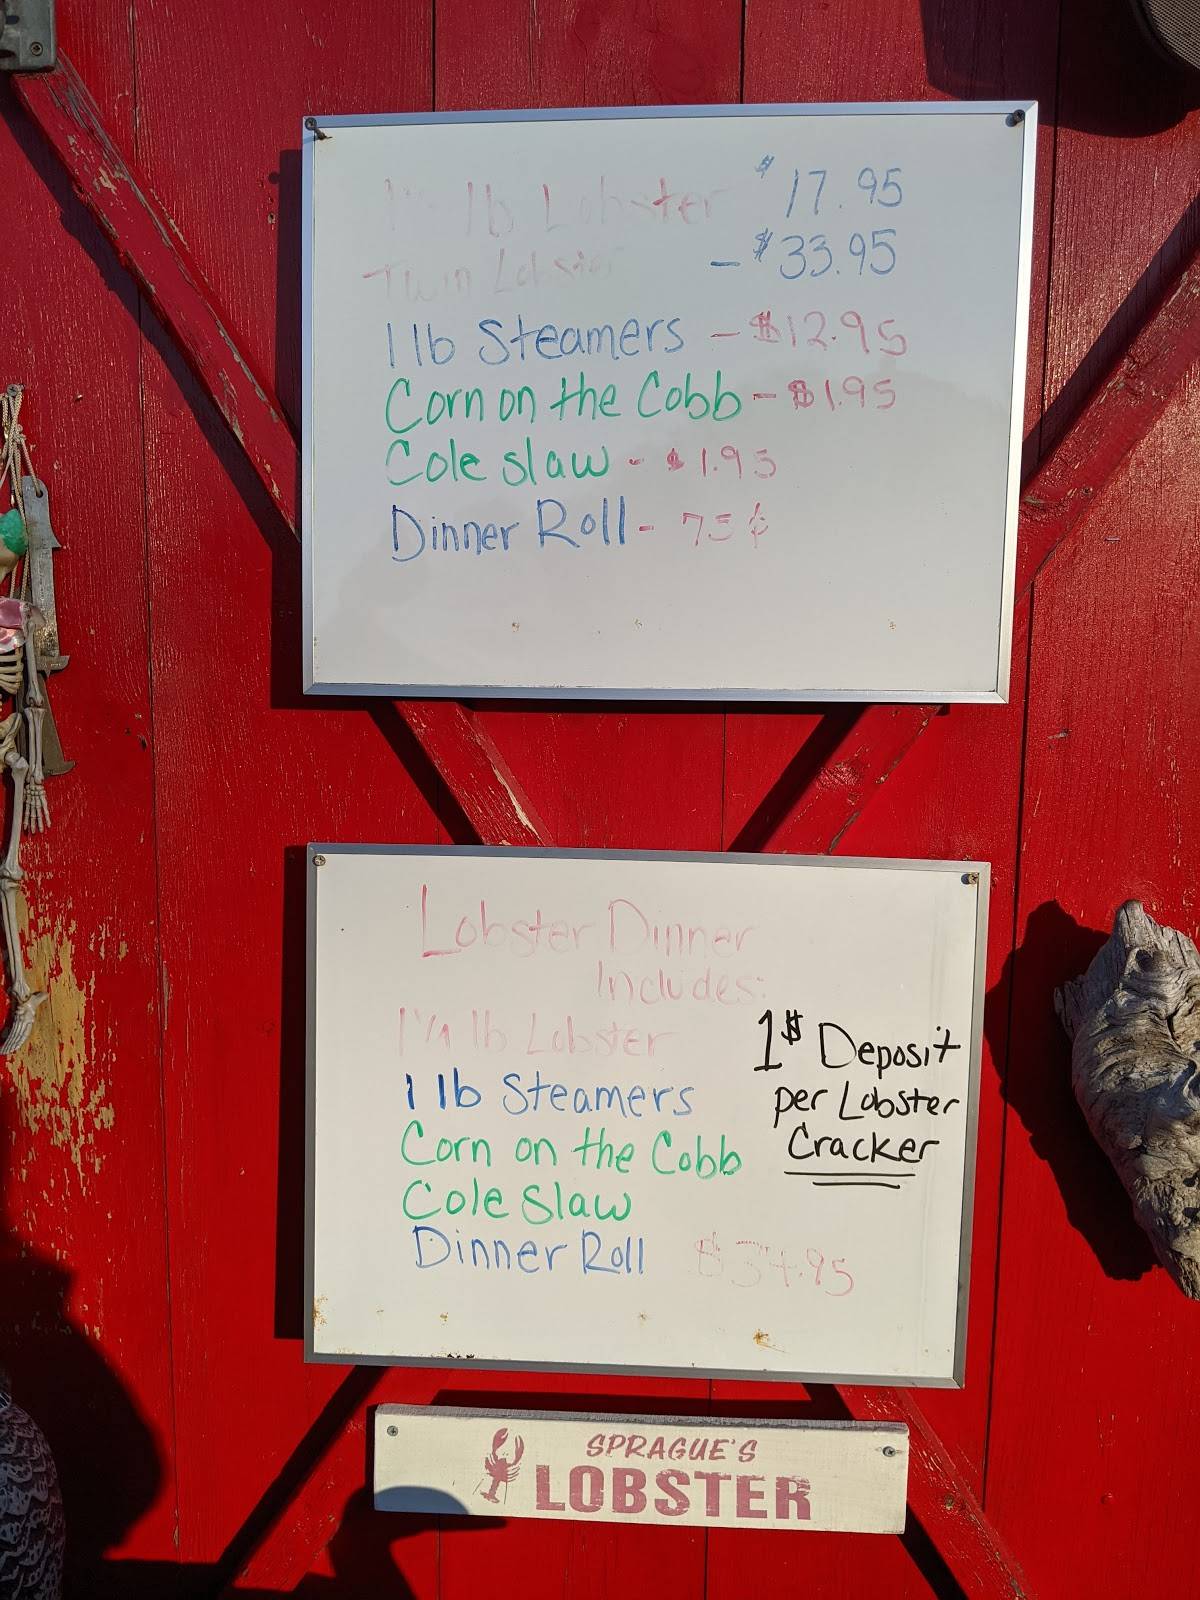 lb Lobster $17.95
Twin Lobster - $33.95
1 lb Steamers - $12.95
Corn on the Cobb - $1.95
Cole slaw - $1.95
Dinner Roll - 75¢
Lobster Dinner
Includes:
1 1/4 lb Lobster
1 lb Steamers
Corn on the Cobb
Cole Slaw
Dinner Roll $34.95
1$ Deposit
per Lobster
Cracker
SPRAGUE'S
LOBSTER